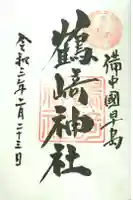 備中國早島
鶴崎神社
令和三年二月二十三日